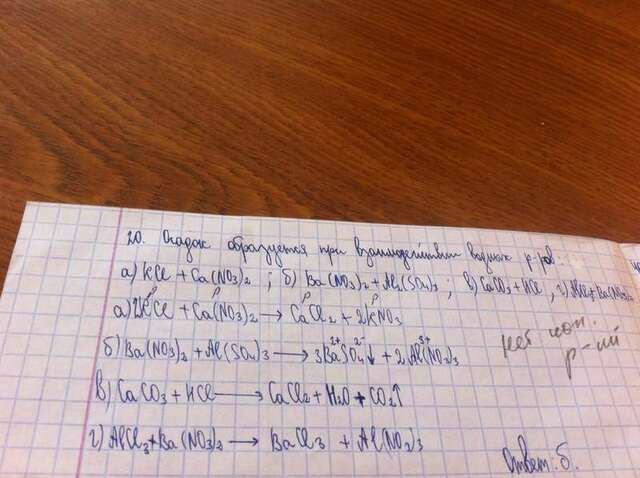 20. Осадок образуется при взаимодействии водных р-ров:
а) KCl + Ca(NO3)2 ; б) Ba(NO3)2 + Al2(SO4)3 ; в) CaCO3 + HCl , г) AlCl3 + Ba(NO3)2
р р р р
а) 2KCl + Ca(NO3)2 → CaCl2 + 2KNO3
нет ион. р-ий
2+ 2- 3+
б) Ba(NO3)2 + Al(SO4)3 → 3BaSO4↓ + 2Al(NO3)3
в) CaCO3 + HCl → CaCl2 + H2O + CO2↑
г) AlCl3 + Ba(NO3)2 → BaCl3 + Al(NO3)3
Ответ: б.